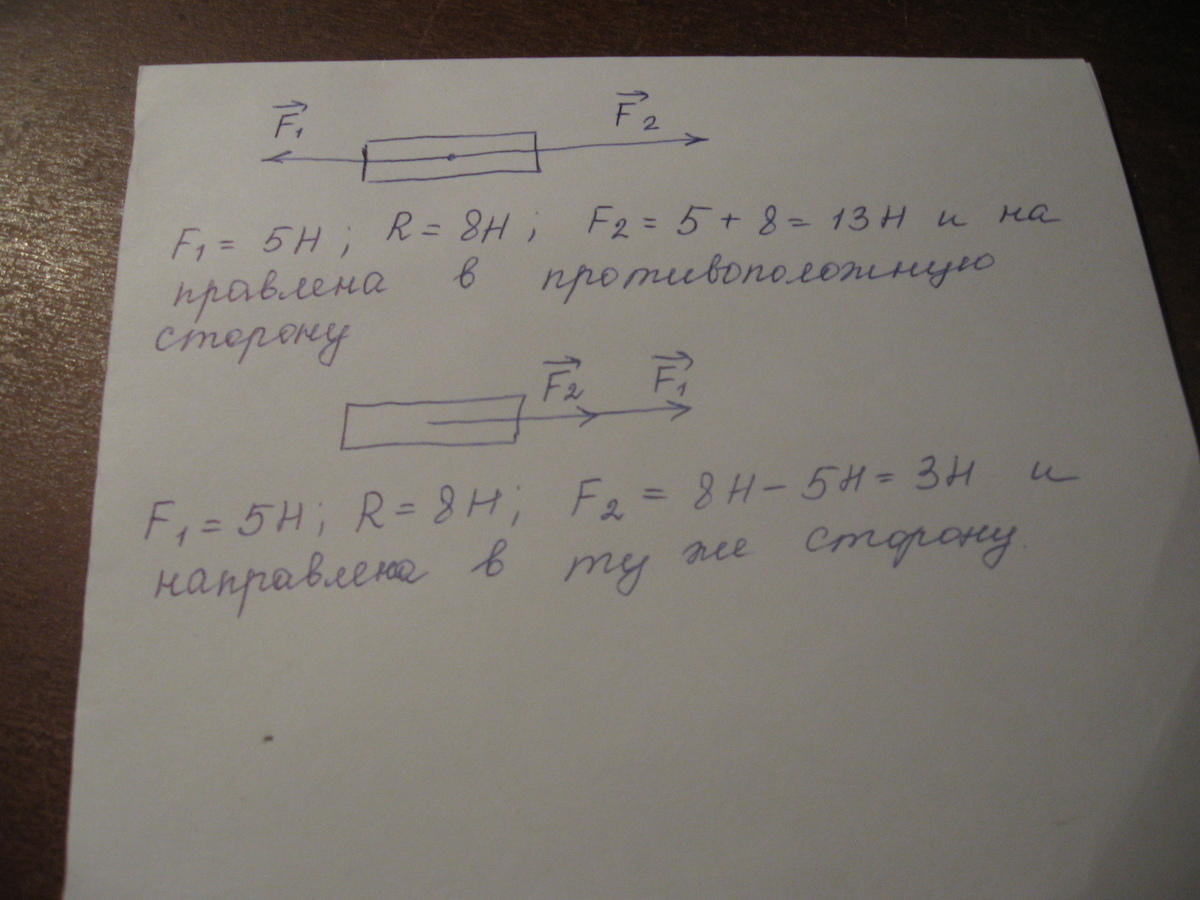 F₁ F₂
F₁ = 5Н; R = 8Н; F₂ = 5 + 8 = 13Н и на
правлена в противоположную
сторону
F₂ F₁
F₁ = 5Н; R = 8Н; F₂ = 8Н - 5Н = 3Н и
направлена в ту же сторону.